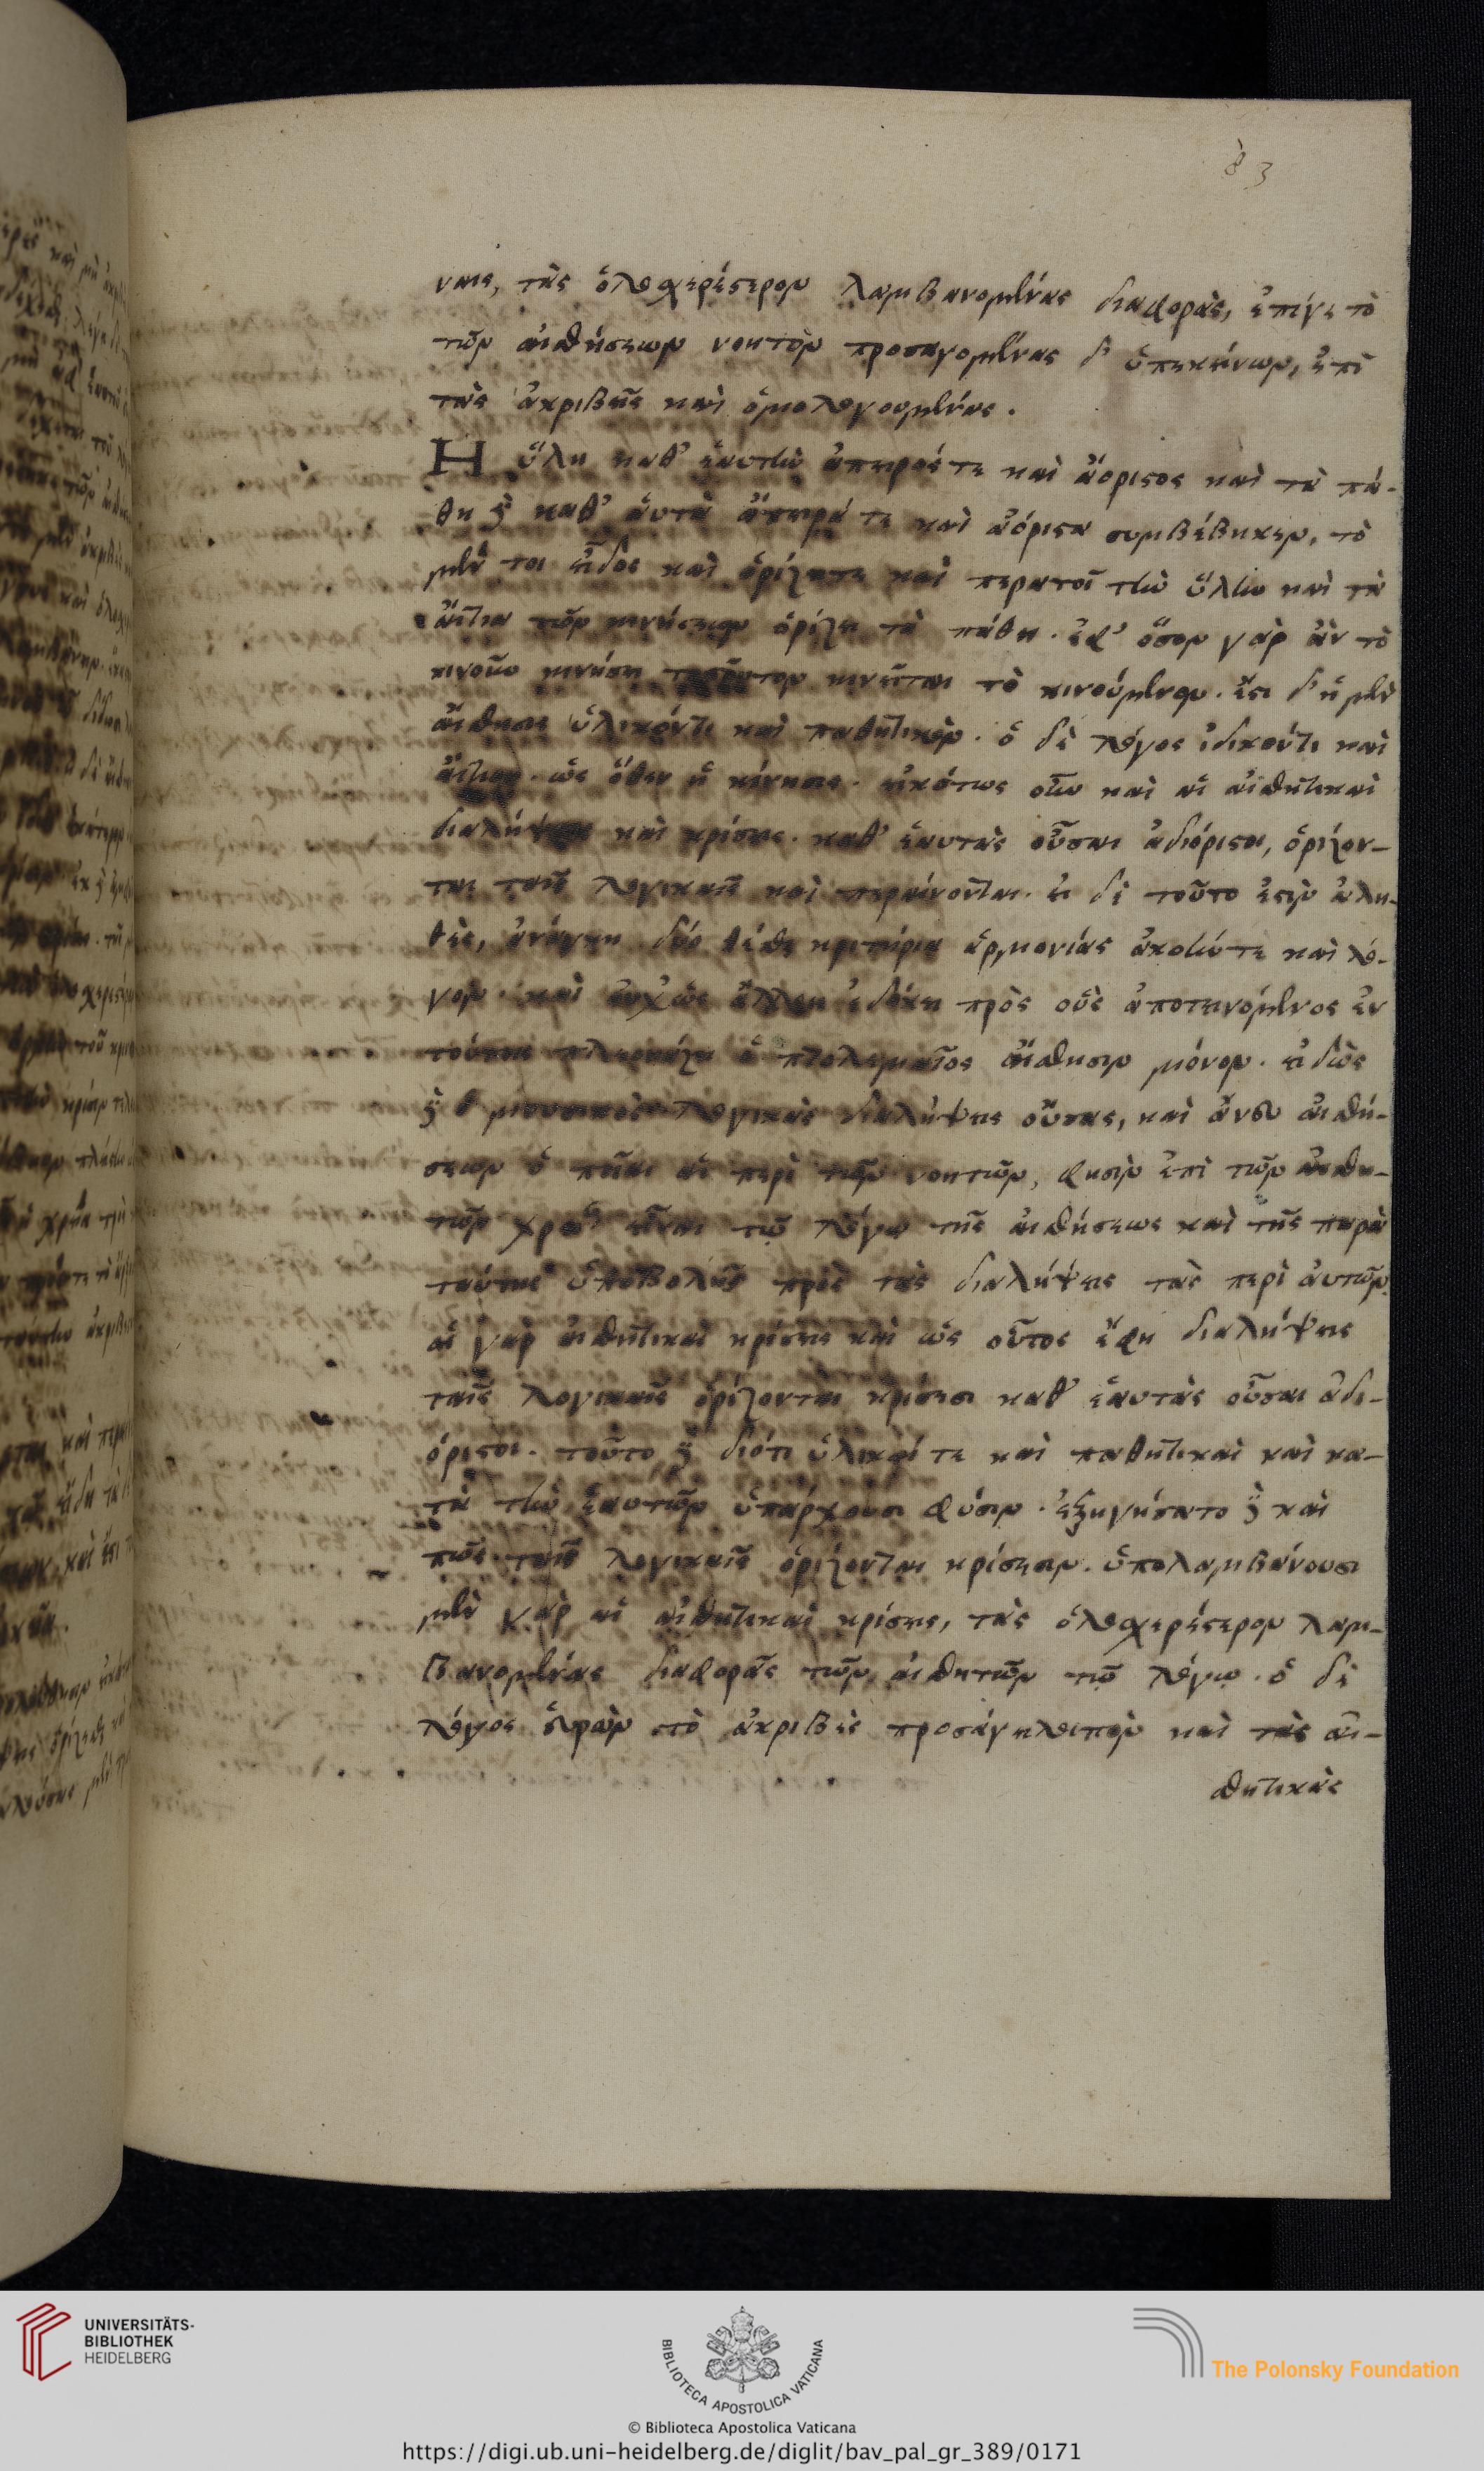 83
ναις, τὰς ὁλοσχερέστερον λαμβανομένας διαφορὰς, ἐπίγε τὸ
τῶν αἰσθήσεων νοητὸν προσαγομένας δ' ὑπεκείνων, ἐπὶ
τὰς ἀκριβεῖς καὶ ὁμολογουμένας.
Η ὕλη καθ' ἑαυτὴν ἄπειρός τε καὶ ἄοριστος καὶ τὰ πά-
θη δὲ καθ' ἁυτὰ ἄπειρά τε καὶ ἀόριστα συμβέβηκεν, τὸ
μέν τοι εἶδος καὶ ὁρίζει τε καὶ περατοῖ τὴν ὕλην καὶ τὰ
ἄιτια τῶν κινήσεων ὁρίζει τὰ πάθη. ἐφ' ὅσον γὰρ ἂν τὸ
κινοῦν κινήση τοσοῦτον κινεῖται τὸ κινούμενον. ἔστι δ' ἡ μὲν
ἄισθησις ὑλικόν τι καὶ παθητικὸν. ὁ δὲ λόγος ἰδικόν τι καὶ
ἄιτιον. ὡς ὅθεν ἡ κίνησις. εἰκότως οὖν καὶ αἱ αἰσθητικαὶ
διαλήψεις καὶ κρίσεις. καθ' ἑαυτὰς οὖσαι ἀδιόριστοι, ὁρίζον-
ται ταῖς λογικαῖς καὶ περαίνονται. εἰ δὲ τοῦτο ἐστὶν ἀλη-
θὲς, ἀνάγκη δύο θέσθαι κριτήρια ἁρμονίας ἀκοήν τε καὶ λό-
γον. καὶ οὐχ ὡς ἄλλοις ἐδόκει πρὸς οὓς ἀποτεινόμενος ἐν
τούτοις ὁ πτολεμαῖος ἄισθησιν μόνον. εἰδὼς
δὲ ὁ μουσικὸς λογικὰς διαλήψεις οὔσας, καὶ ἄνευ αἰσθή-
σεων αἱ περὶ τῶν νοητῶν, φησὶν ἐπὶ τῶν ἀισθη-
τῶν χρείαν εἶναι τῷ λόγῳ τῆς αἰσθήσεως καὶ τῆς παρὰ
ταύτης ὑποβολῆς πρὸς τὰς διαλήψεις τὰς περὶ ἀυτῶν.
αἱ γὰρ αἰσθητικαὶ κρίσεις καὶ ὡς οὗτος ἔφη διαλήψεις
ταῖς λογικαῖς ὁρίζονται κρίσεσι καθ' ἑαυτὰς οὖσαι ἀδι-
όριστοι. τοῦτο δὲ διότι ὑλικαί τε καὶ παθητικαὶ καὶ κα-
τὰ τὴν ἑαυτῶν ὑπάρχουσι φύσιν. ἐξηγήσατο δὲ καὶ
πῶς ταῖς λογικαῖς ὁρίζονται κρίσεσιν. ὑπολαμβάνουσι
μὲν γὰρ αἱ αἰσθητικαὶ κρίσεις, τὰς ὁλοσχερέστερον λαμ-
βανομένας διαφορὰς τῶν αἰσθητῶν τῷ λόγῳ. ὁ δὲ
λόγος εὑρὼν τὸ ἀκριβὲς προσάγει λοιπὸν καὶ τὰς αἰ-
σθητικὰς
UNIVERSITÄTS-
BIBLIOTHEK
HEIDELBERG
BIBLIOTECA APOSTOLICA VATICANA
The Polonsky Foundation
© Biblioteca Apostolica Vaticana
https://digi.ub.uni-heidelberg.de/diglit/bav_pal_gr_389/0171